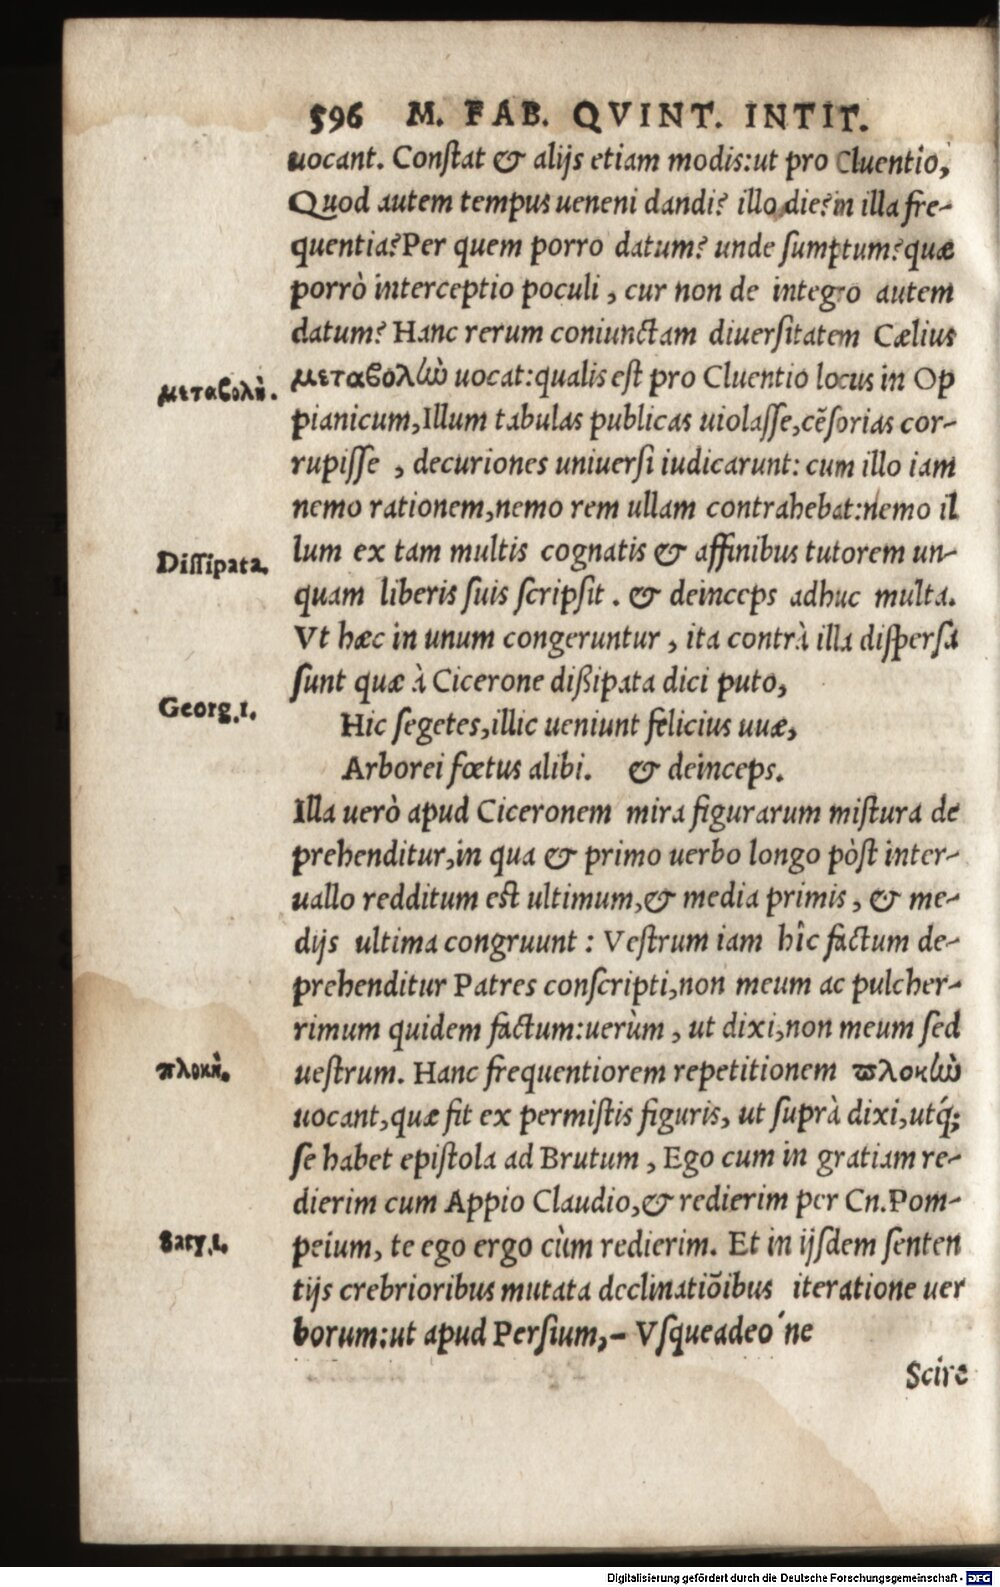 596 M. FAB. QVINT. INTIT.
uocant. Conſtat & alijs etiam modis:ut pro Cluentio,
Quod autem tempus ueneni dandi? illo die?in illa fre-
quentia?Per quem porro datum? unde ſumptum?quæ
porrò interceptio poculi, cur non de integro autem
datum? Hanc rerum coniunctam diuerſitatem Cælius
μεταβολὴ.
μεταβολὼ uocat:qualis eſt pro Cluentio locus in Op
pianicum,Illum tabulas publicas uiolaſſe,cẽſorias cor-
rupiſſe, decuriones uniuerſi iudicarunt: cum illo iam
nemo rationem,nemo rem ullam contrahebat:nemo il
Diſſipata.
lum ex tam multis cognatis & affinibus tutorem un-
quam liberis ſuis ſcripſit. & deinceps adhuc multa.
Vt hæc in unum congeruntur, ita contrà illa diſperſa
ſunt quæ à Cicerone dißipata dici puto,
Georg.1.
Hic ſegetes,illic ueniunt felicius uuæ,
Arborei fœtus alibi. & deinceps.
Illa uerò apud Ciceronem mira figurarum miſtura de
prehenditur,in qua & primo uerbo longo pòſt inter-
uallo redditum eſt ultimum,& media primis, & me-
dijs ultima congruunt: Veſtrum iam hîc factum de-
prehenditur Patres conſcripti,non meum ac pulcher-
rimum quidem factum:uerùm, ut dixi,non meum ſed
πλοκὴ.
ueſtrum. Hanc frequentiorem repetitionem ϖλοκὼ
uocant,quæ fit ex permiſtis figuris, ut ſuprà dixi,utq́;
ſe habet epiſtola ad Brutum, Ego cum in gratiam re-
dierim cum Appio Claudio,& redierim per Cn.Pom-
Saty.1.
peium, te ego ergo cùm redierim. Et in ijſdem ſenten
tijs crebrioribus mutata declinatiõibus iteratione uer
borum:ut apud Perſium,- Vſqueadeo'ne
Scire
Digitalisierung gefördert durch die Deutsche Forschungsgemeinschaft - DFG